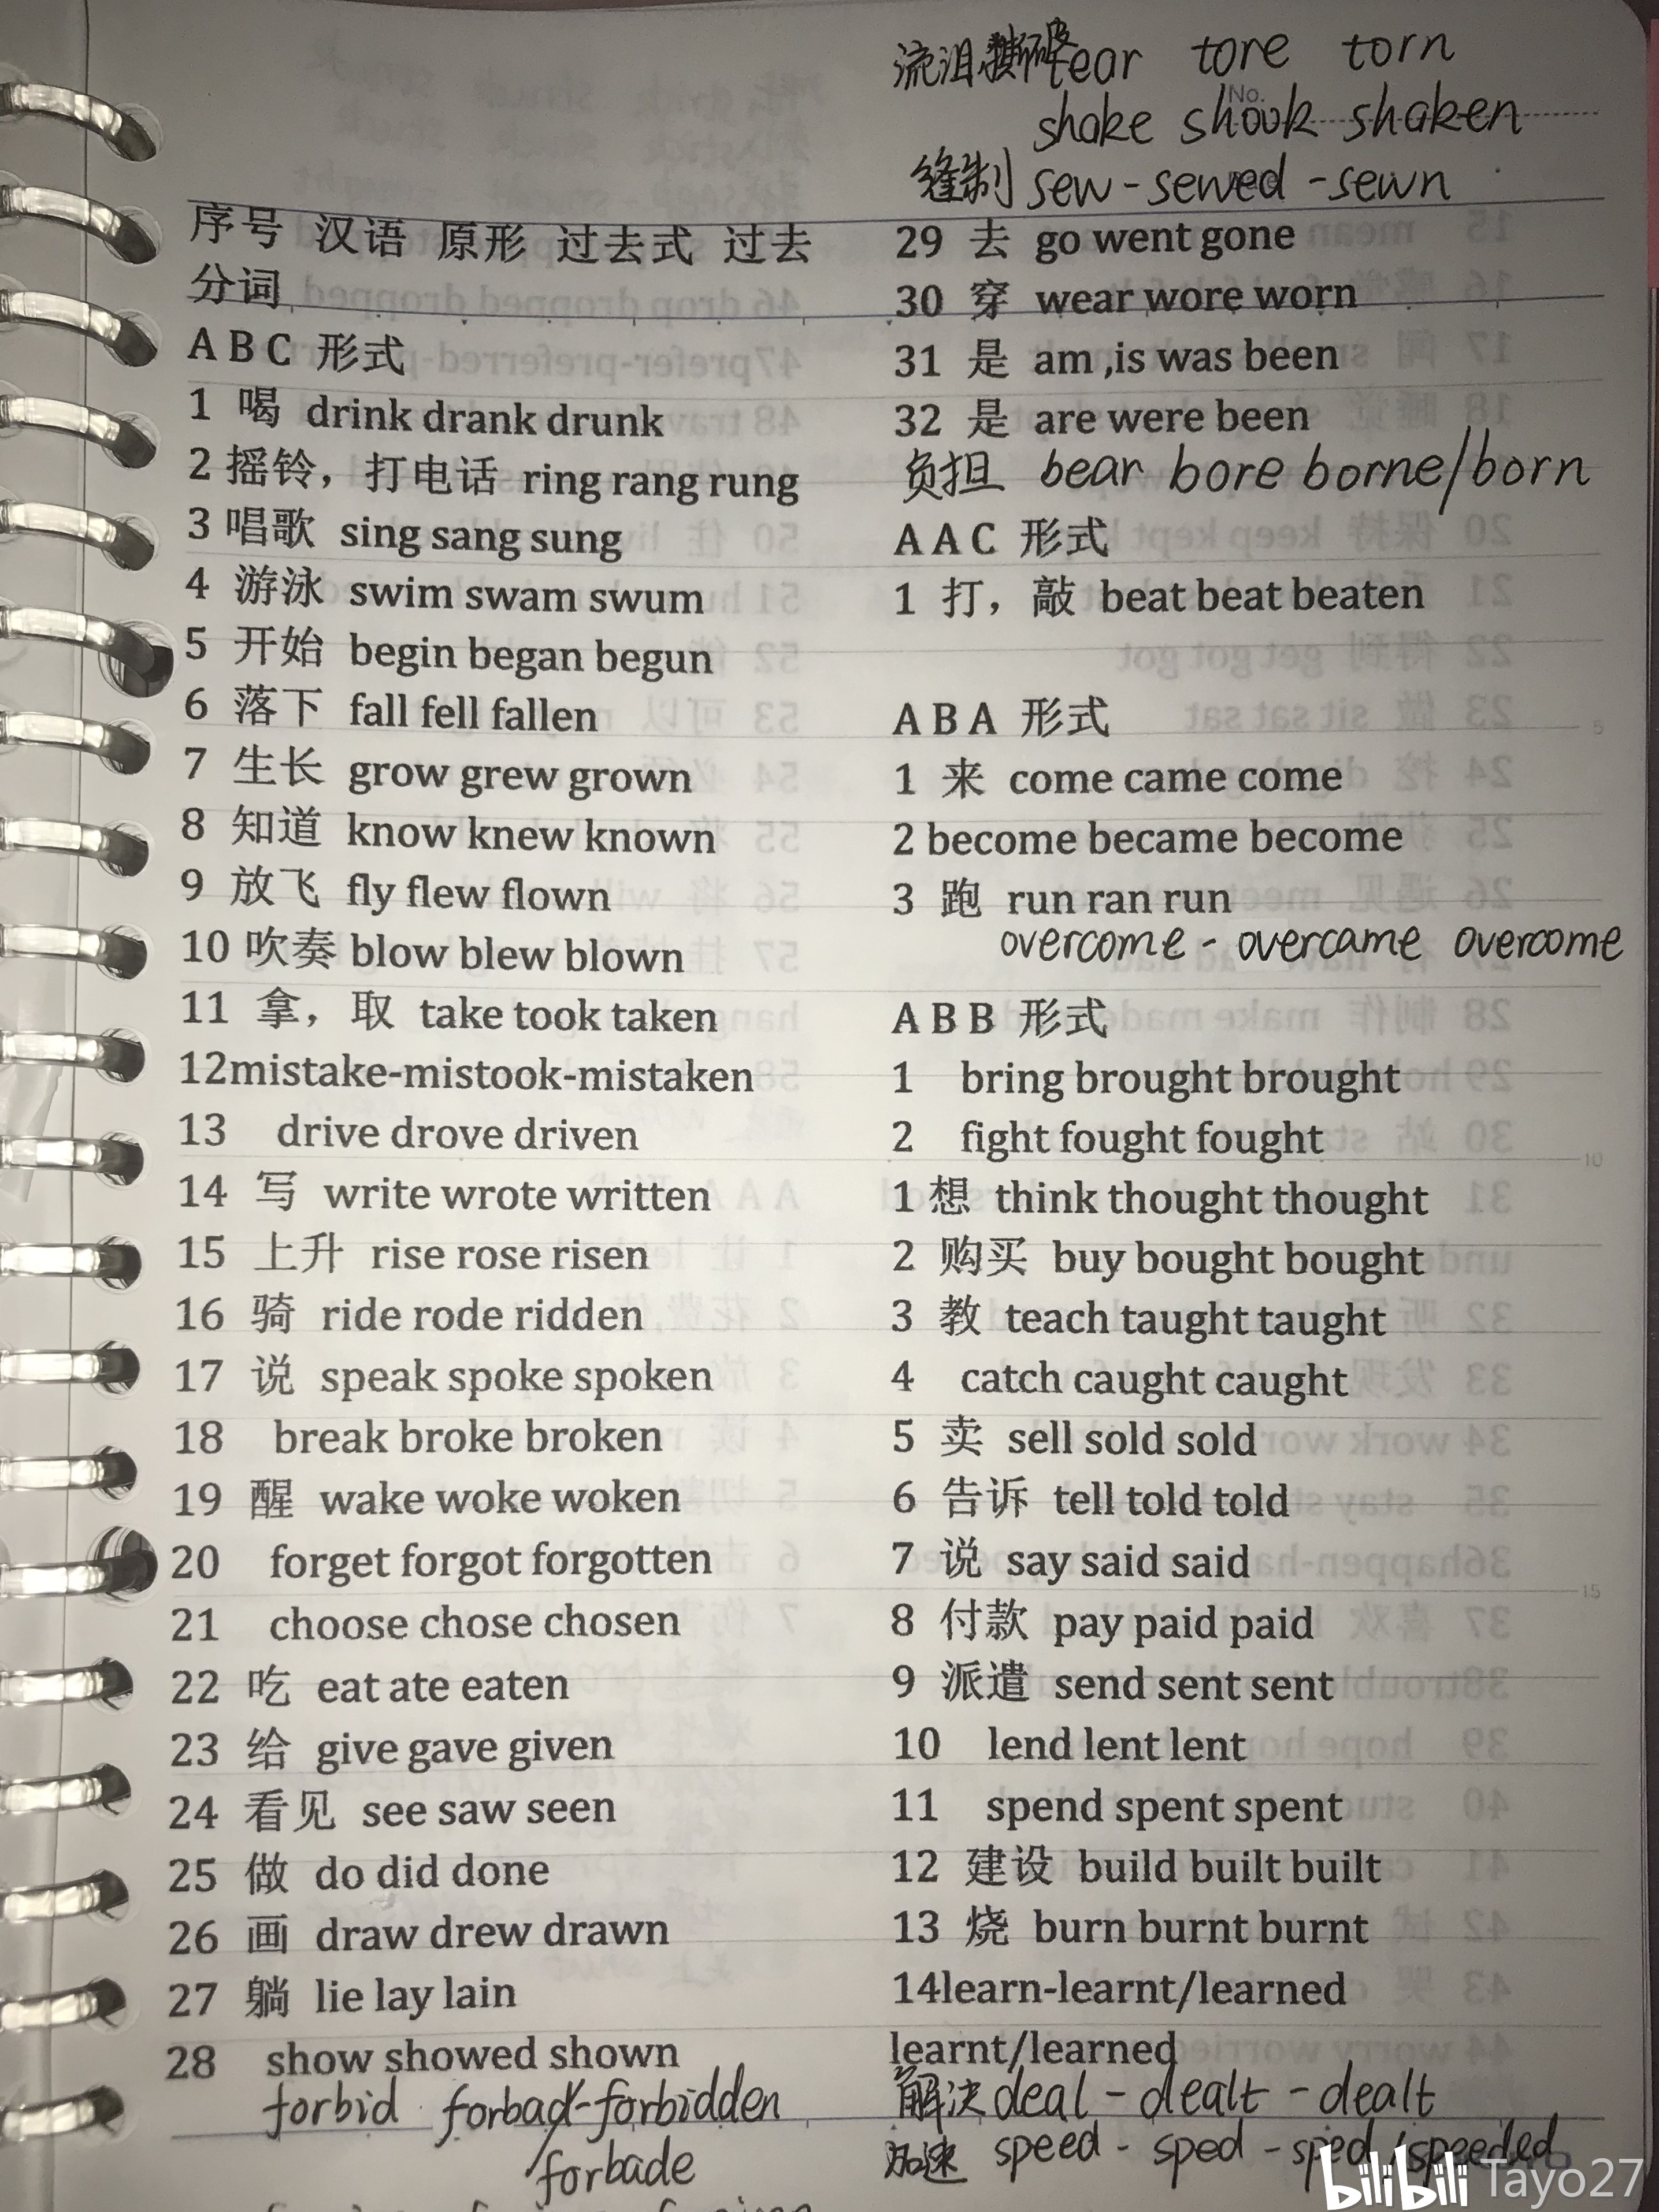 序号 汉语 原形 过去式 过去
分词
A B C 形式
1 喝 drink drank drunk
2 摇铃，打电话 ring rang rung
3 唱歌 sing sang sung
4 游泳 swim swam swum
5 开始 begin began begun
6 落下 fall fell fallen
7 生长 grow grew grown
8 知道 know knew known
9 放飞 fly flew flown
10 吹奏 blow blew blown
11 拿，取 take took taken
12mistake-mistook-mistaken
13 drive drove driven
14 写 write wrote written
15 上升 rise rose risen
16 骑 ride rode ridden
17 说 speak spoke spoken
18 break broke broken
19 醒 wake woke woken
20 forget forgot forgotten
21 choose chose chosen
22 吃 eat ate eaten
23 给 give gave given
24 看见 see saw seen
25 做 do did done
26 画 draw drew drawn
27 躺 lie lay lain
28 show showed shown
forbid forbad/-forbidden
forbade
流泪 撕破 tear tore torn
No.
shake shook shaken
缝制 sew - sewed - sewn
29 去 go went gone
30 穿 wear wore worn
31 是 am ,is was been
32 是 are were been
负担 bear bore borne/born
A A C 形式
1 打，敲 beat beat beaten
A B A 形式
1 来 come came come
2 become became become
3 跑 run ran run
overcome - overcame overcome
A B B 形式
1 bring brought brought
2 fight fought fought
1 想 think thought thought
2 购买 buy bought bought
3 教 teach taught taught
4 catch caught caught
5 卖 sell sold sold
6 告诉 tell told told
7 说 say said said
8 付款 pay paid paid
9 派遣 send sent sent
10 lend lent lent
11 spend spent spent
12 建设 build built built
13 烧 burn burnt burnt
14learn-learnt/learned
learnt/learned
解决 deal - dealt - dealt
加速 speed - sped - sped/speeded
bilibili Tayo27